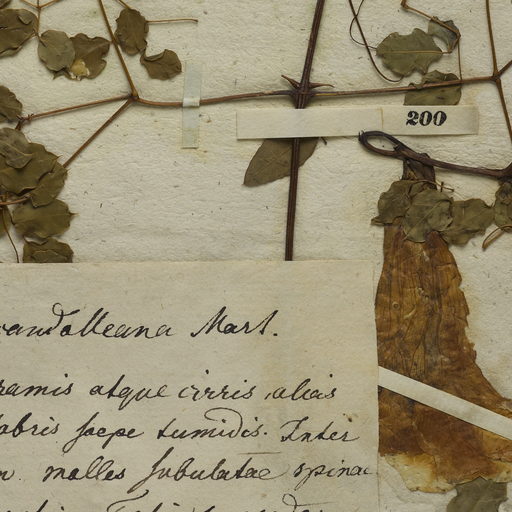 200
candolleana Mart.
ramis atque cirris aliis
labris saepe tumidis. Inter
molles subulatae spinae